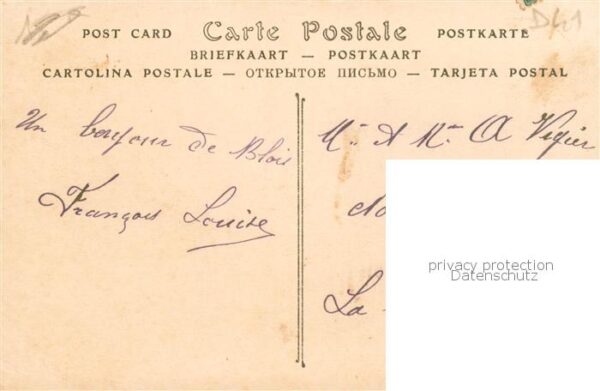 D41
POST CARD Carte Postale POSTKARTE
BRIEFKAART — POSTKAART
CARTOLINA POSTALE — ОТКРЫТОЕ ПИСЬМО — TARJETA POSTAL
Un bonjour de Blois
François Louise
Mr & Mme A Vigier
La
privacy protection
Datenschutz